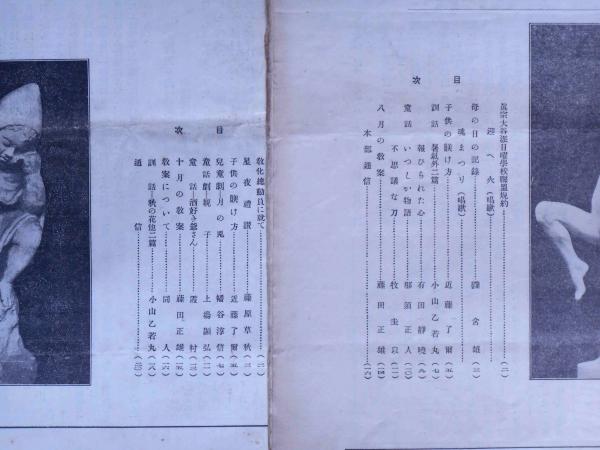 目次
眞宗大谷派日曜學校聯盟規約……(二)
迎へ火(唱歌)
母の日の記錄……舍雄…(三)
魂まつり(唱歌)
子供の躾け方……近藤了爾…(五)
訓話 暑氣外二篇……小山乙若丸…(七)
報ひられた心……有田靜曉…(九)
童話 いつしか物語……那須正人…(一〇)
不思議な刀……牧圭…(一二)
八月の敎案……藤田正雄…(一四)
本部通信……(一六)
目次
敎化總動員に就て……(二)
星夜禮讃……藤原草秋…(三)
子供の躾け方……近藤了爾…(五)
兒童劇―月の兎……幡谷淳信…(七)
童話劇―親子……上島顯弘…(一一)
童話―酒好き爺さん……霞村…(一三)
十月の敎案……藤田正雄…(一五)
敎案について……同人…(一六)
訓話―秋の花他二篇……小山乙若丸…(一八)
通信……(二〇)